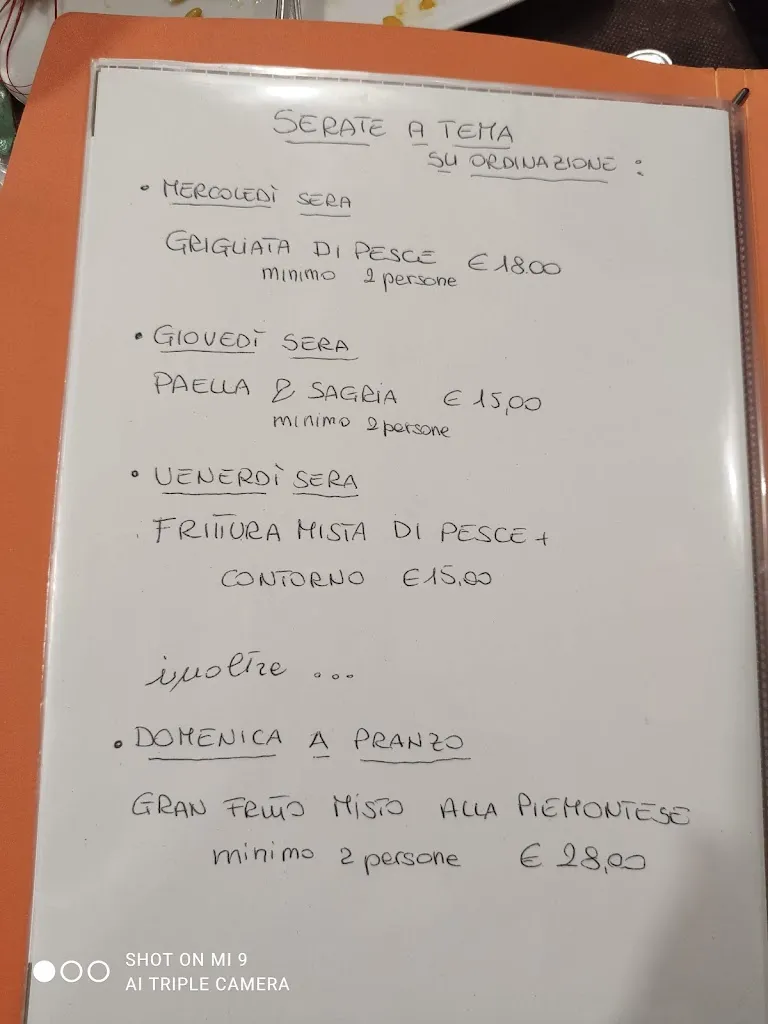 SERATE A TEMA
SU ORDINAZIONE :
• MERCOLEDÌ SERA
GRIGLIATA DI PESCE € 18.00
minimo 2 persone
• GIOVEDÌ SERA
PAELLA & SAGRIA € 15,00
minimo 2 persone
• VENERDÌ SERA
FRITTURA MISTA DI PESCE +
CONTORNO € 15,00
inoltre ...
• DOMENICA A PRANZO
GRAN FRITTO MISTO ALLA PIEMONTESE
minimo 2 persone € 28,00
SHOT ON MI 9
AI TRIPLE CAMERA